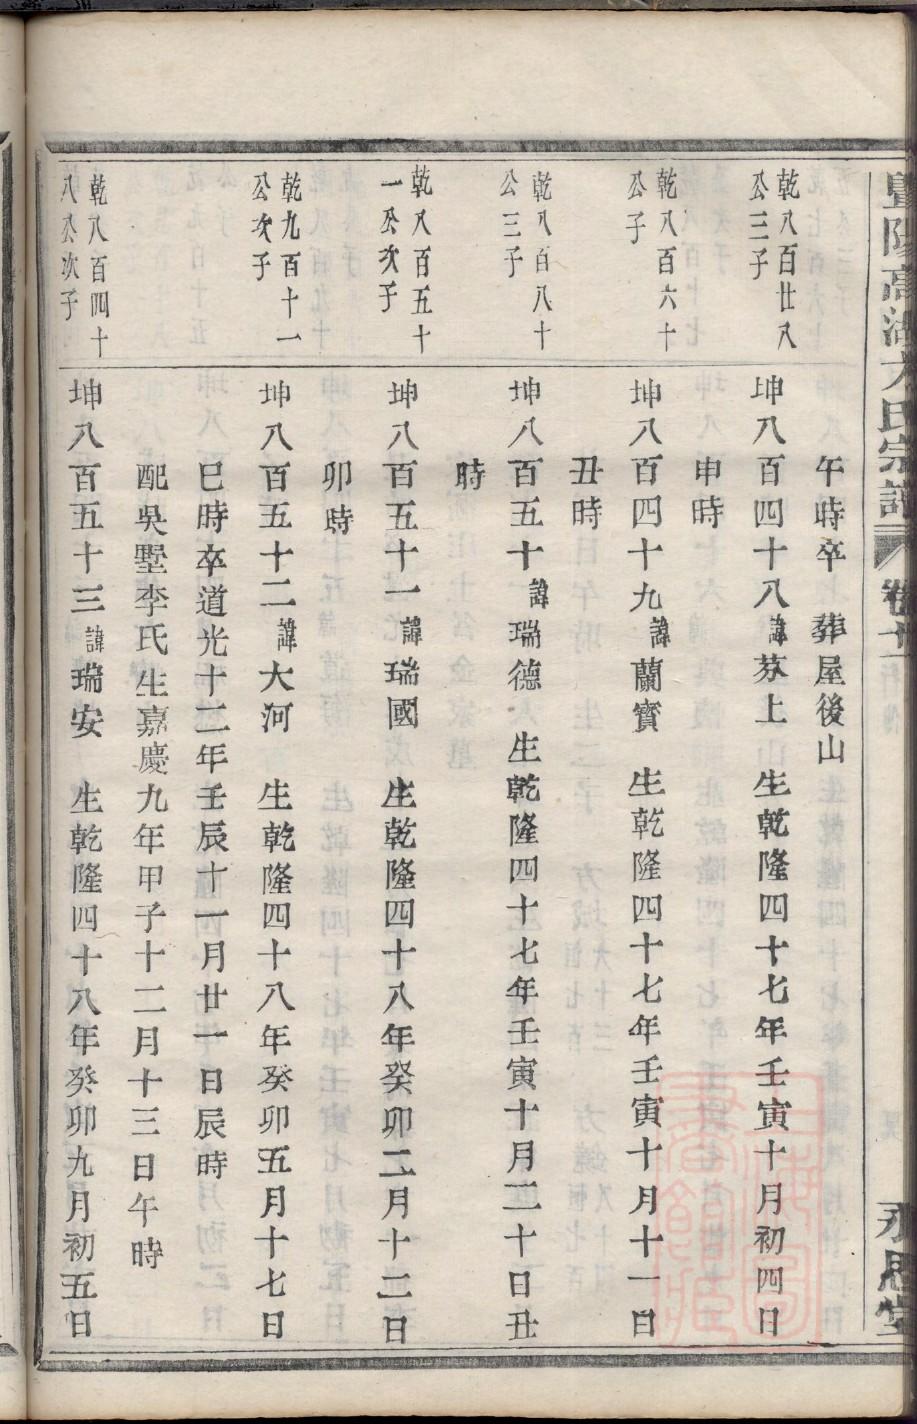 暨陽高湖方氏宗譜 卷廿一 永思堂
午時卒 葬屋後山
乾八百廿八
公三子
坤八百四十八諱芬上 生乾隆四十七年壬寅十月初四日
申時
乾八百六十
公子
坤八百四十九諱蘭寶 生乾隆四十七年壬寅十月十一日
丑時
乾八百八十
公三子
坤八百五十諱瑞德 生乾隆四十七年壬寅十月三十日丑
時
乾八百五十
一公次子
坤八百五十一諱瑞國 生乾隆四十八年癸卯二月十二日
卯時
乾九百十一
公次子
坤八百五十二諱大河 生乾隆四十八年癸卯五月十七日
巳時卒道光十二年壬辰十一月廿一日辰時
配吳墅李氏生嘉慶九年甲子十二月十三日午時
乾八百四十
八公次子
坤八百五十三諱瑞安 生乾隆四十八年癸卯九月初五日